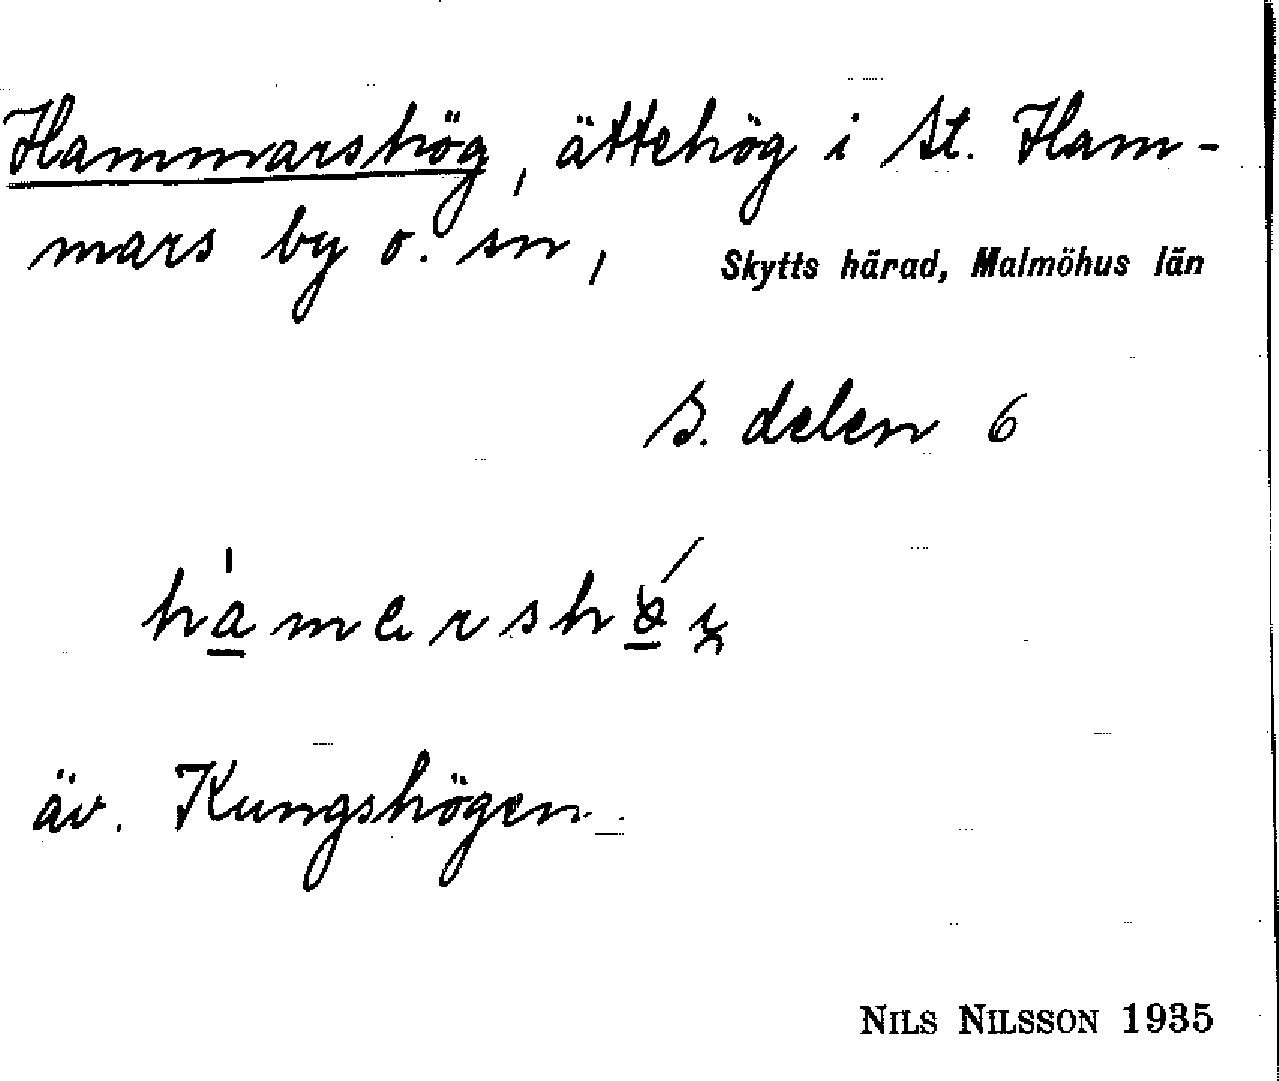 Hammarshög, ättehög i St. Ham-
mars by o. sn, Skytts härad, Malmöhus län
S. delen 6
äv. Kungshögen
NILS NILSSON 1935